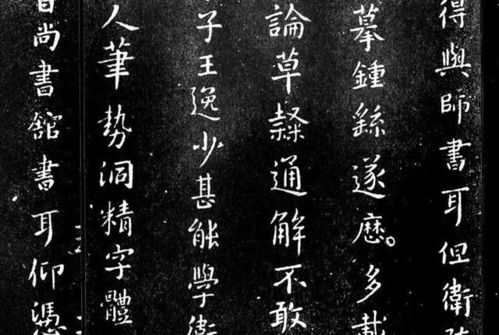 得與師書耳但衛
摹鍾繇遂歷多載
論草隸通解不敢
子王逸少甚能學衛
人筆勢洞精字體
尚書館書耳仰憑